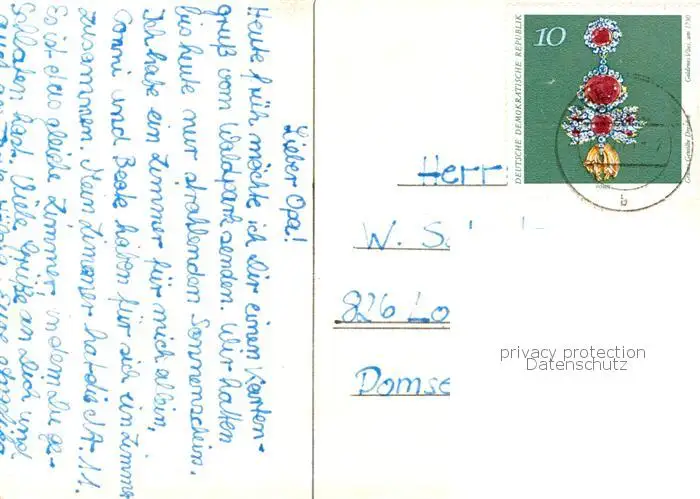 Lieber Opa!
Heute früh möchte ich Dir einen Karten-
gruß vom Waldpark senden. Wir hatten
bis heute nur strahlenden Sonnenschein.
Ich habe ein Zimmer für mich allein,
Conni und Beate haben für sich ein Zimmer
zusammen. Mein Zimmer hat die Nr. 11.
Es ist das gleiche Zimmer in dem Du ge-
schlafen hast. Viele Grüße an Dich und
DEUTSCHE DEMOKRATISCHE REPUBLIK
10
Goldenes Vlies, um 1750
Grünes Gewölbe Dresden
Herr
W. S
826 Lo
Domse
privacy protection
Datenschutz